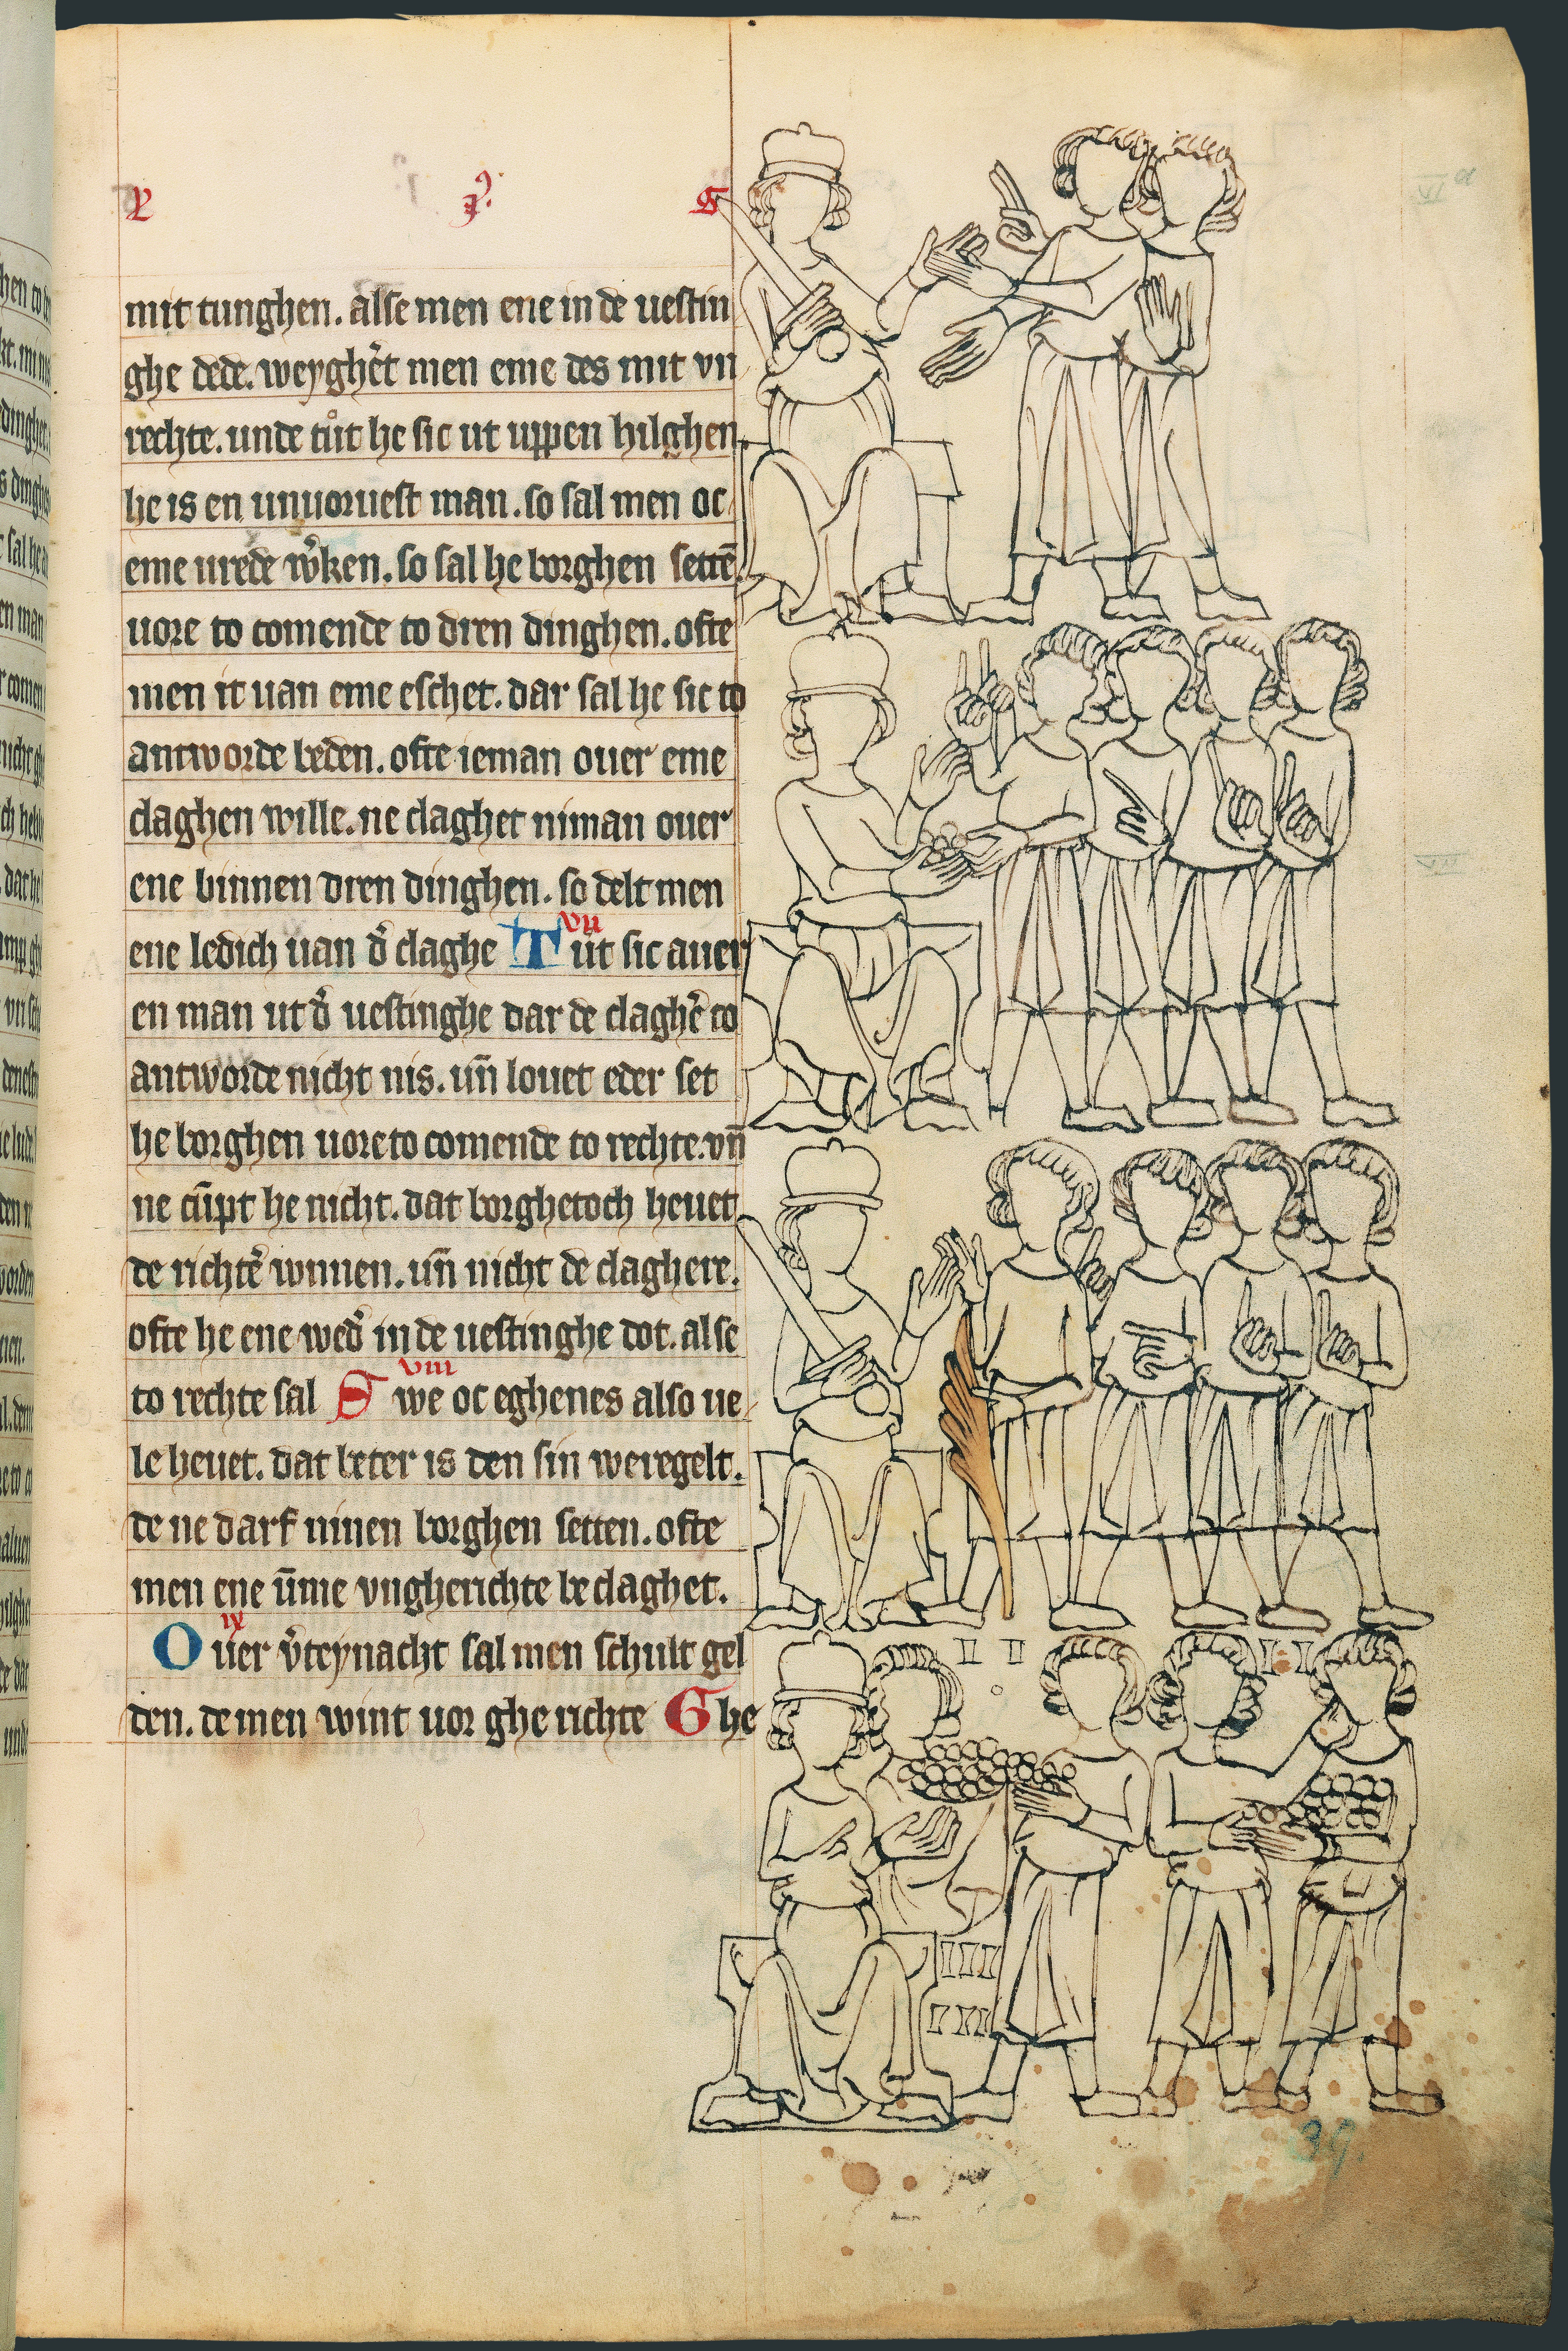 mit tunghen. alse men ene in de uestin
ghe dede. weyghēt men eme des mit vn
rechte. unde tůt he sic ut uppen hilghen
he is en unuoruest man. so sal men oc
eme urede w̉ken. so sal he borghen settē
uore to comende to dren dinghen. ofte
men it uan eme eschet. dar sal he sic to
antworde beden. ofte ieman ouer eme
claghen wille. ne claghet niman ouer
ene binnen dren dinghen. so delt men
ene ledich uan d̉ claghe
VII
Tůt sic auer
en man ut d̉ uestinghe dar de claghē to
antworde nicht nis. un̄ louet eder set
he borghen uore to comende to rechte. vn̄
ne cūpt he nicht. dat borghetoch heuet
de richtē wnnen. un̄ nicht de claghere.
ofte he ene wed̉ in de uestinghe dot. alse
VIII
to rechte sal Swe oc eghenes also ue
le heuet. dat beter is den sin weregelt.
de ne darf ninen borghen setten. ofte
men ene ūme vngherichte beclaghet.
IX
Ouer v̉teynacht sal men schult gel
den. de men wint uor gherichte Ghe
39.